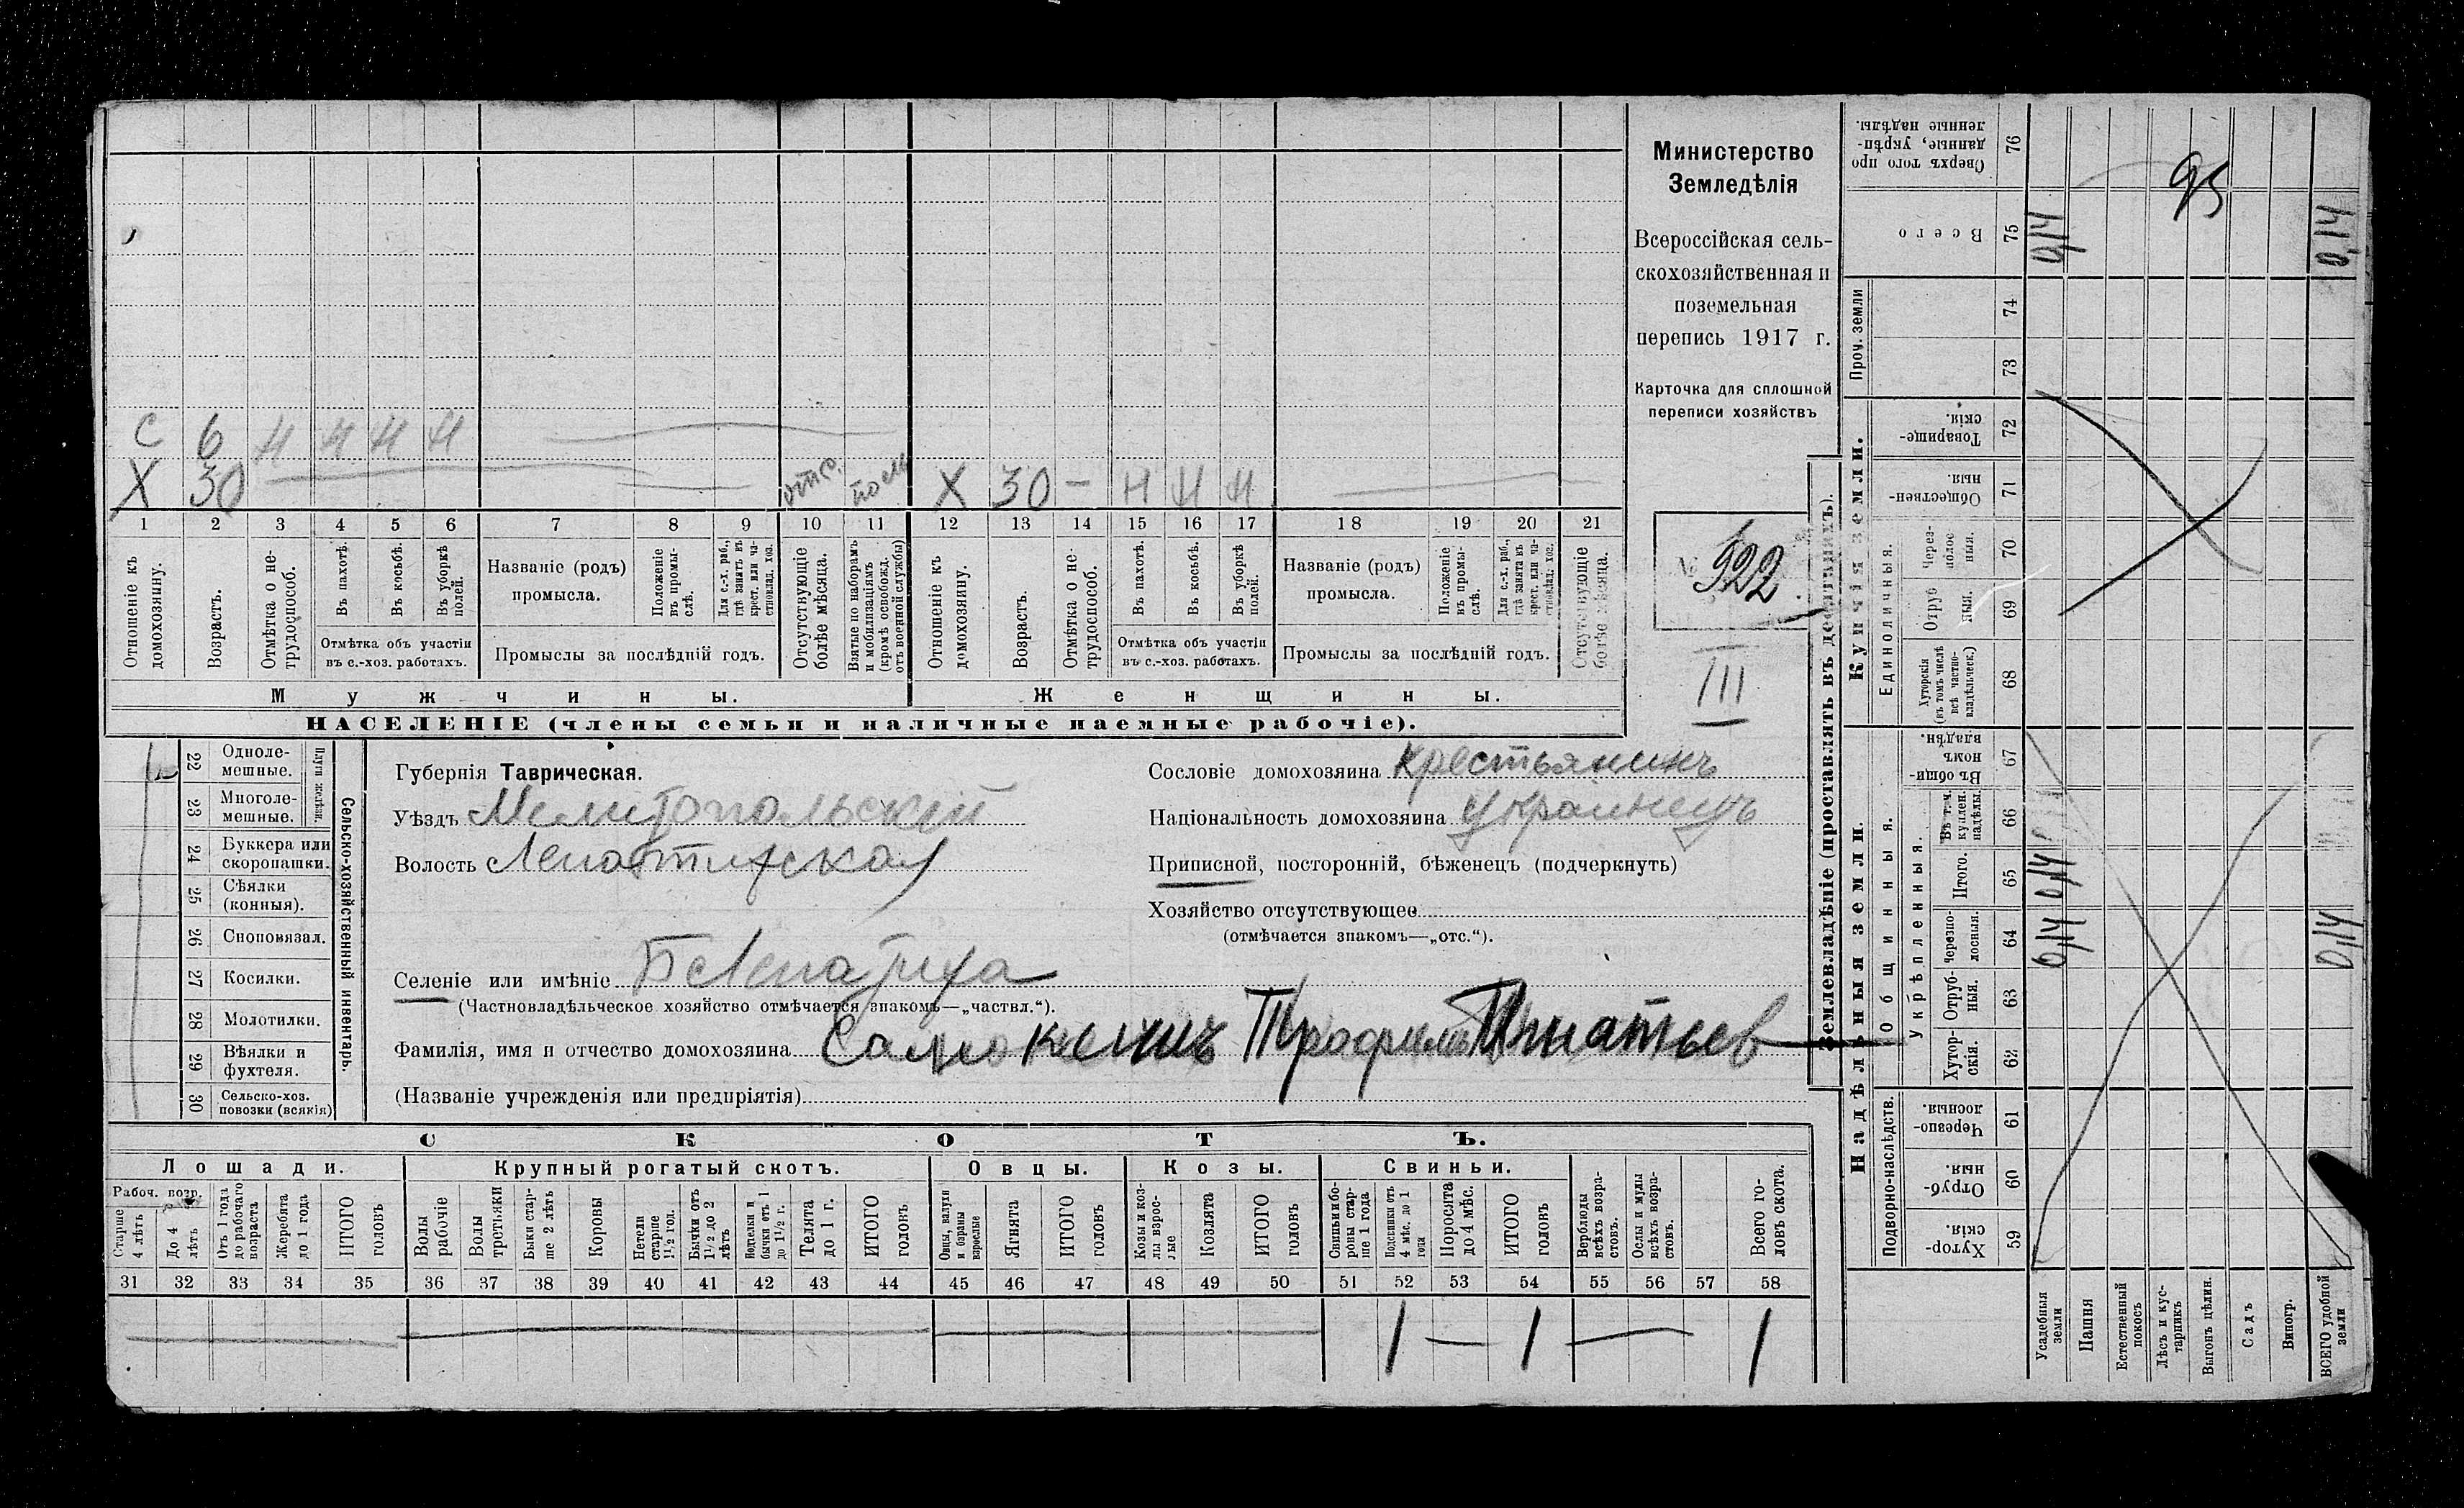 Министерство
Земледѣлія
Всероссійская сель-
скохозяйственная и
поземельная
перепись 1917 г.
Карточка для сплошной
переписи хозяйствъ
№ 922
III
С 6 Н Н Н Н
Х 30 отс. Х 30 — Н Н Н
1 2 3 4 5 6 7 8 9 10 11 12 13 14 15 16 17 18 19 20 21
Отношеніе къ домохозяину.
Возрастъ.
Отмѣтка о не-трудоспособ.
Въ пахотѣ.
Въ косьбѣ.
Въ уборкѣ полей.
Отмѣтка объ участіи въ с.-хоз. работахъ.
Названіе (родъ) промысла.
Положеніе въ промы-слѣ.
Для с.-х. раб., гдѣ занятъ въ крест. или ча-стновлад. хоз.
Промыслы за послѣдній годъ.
Отсутствующіе болѣе мѣсяца.
Взятые по наборамъ и мобилизаціямъ (кромѣ освобожд. отъ военной службы)
Отношеніе къ домохозяину.
Возрастъ.
Отмѣтка о не-трудоспособ.
Въ пахотѣ.
Въ косьбѣ.
Въ уборкѣ полей.
Отмѣтка объ участіи въ с.-хоз. работахъ.
Названіе (родъ) промысла.
Положеніе въ промы-слѣ.
Для с.-х. раб., гдѣ занята въ крест. или ча-стновлад. хоз.
Промыслы за послѣдній годъ.
Отсутствующіе болѣе мѣсяца.
Мужчины. Женщины.
НАСЕЛЕНІЕ (члены семьи и наличные наемные рабочіе).
22 Одноле-мешные.
23 Многоле-мешные.
Плуги желѣзн.
24 Буккера или скоропашки.
25 Сѣялки (конныя).
26 Сноповязал.
27 Косилки.
28 Молотилки.
29 Вѣялки и фухтеля.
30 Сельско-хоз. повозки (всякія)
Сельско-хозяйственный инвентарь.
Губернія Таврическая.
Уѣздъ Мелитопольскій
Волость Лепатихская
Селеніе или имѣніе Б Лепатиха
(Частновладѣльческое хозяйство отмѣчается знакомъ—„частвл.“).
Фамилія, имя и отчество домохозяина Трофимъ Игнатьев
(Названіе учрежденія или предпріятія)
Сословіе домохозяина Крестьянинъ
Національность домохозяина Украинецъ
Приписной, посторонній, бѣженецъ (подчеркнуть)
Хозяйство отсутствующее
(отмѣчается знакомъ—„отс.“).
СКОТЪ.
Лошади. Крупный рогатый скотъ. Овцы. Козы. Свиньи.
Рабоч. возр.
Старше 4 лѣтъ
До 4 лѣтъ
Отъ 1 года до рабочаго возраста
Жеребята до 1 года
ИТОГО головъ
Волы рабочіе
Волы третьяки
Быки стар-ше 2 лѣтъ
Коровы
Нетели старше 1½ год.
Бычки отъ 1½ до 2 лѣтъ
Подтелки и бычки отъ 1 до 1½ г.
Телята до 1 г.
ИТОГО головъ.
Овцы, валухи и бараны взрослые
Ягнята
ИТОГО головъ
Козы и коз-лы взрос-лые
Козлята
ИТОГО головъ
Свиньи и бо-ровы стар-ше 1 года
Подсвинки отъ 4 мѣс. до 1 года
Поросята до 4 мѣс.
ИТОГО головъ
Верблюды всѣхъ возра-стовъ.
Ослы и мулы всѣхъ возра-стовъ.
Всего го-ловъ скота.
31 32 33 34 35 36 37 38 39 40 41 42 43 44 45 46 47 48 49 50 51 52 53 54 55 56 57 58
1 — 1 — 1
Землевладѣніе (проставлять въ десятинахъ).
Надѣльныя земли. Купчія земли. Проч. земли
Подворно-наслѣдств.
Общинныя.
Укрѣпленныя.
Единоличныя.
59 Хутор-скія.
60 Отруб-ныя.
61 Черезпо-лосныя.
62 Хутор-скія.
63 Отруб-ныя.
64 Черезпо-лосныя.
65 Итого.
66 Въ т. ч. куплен. надѣлы.
67 Въ общи-номъ владѣн.
68 Хуторскія (въ томъ числѣ всѣ частно-владѣльческ.)
69 Отруб ныя.
70 Через-полос-ныя.
71 Обществен-ныя.
72 Товарище-скія.
73
74
75 Всего
76 Сверхъ того про данные, укрѣп-ленные надѣлы.
Усадебныя земли 0,14 0,14 0,14
Пашня
Естественный покосъ
Лѣсъ и кус-тарникъ
Выгонъ цѣлин.
Садъ
Виногр.
ВСЕГО удобной земли 0,14 0,14
95